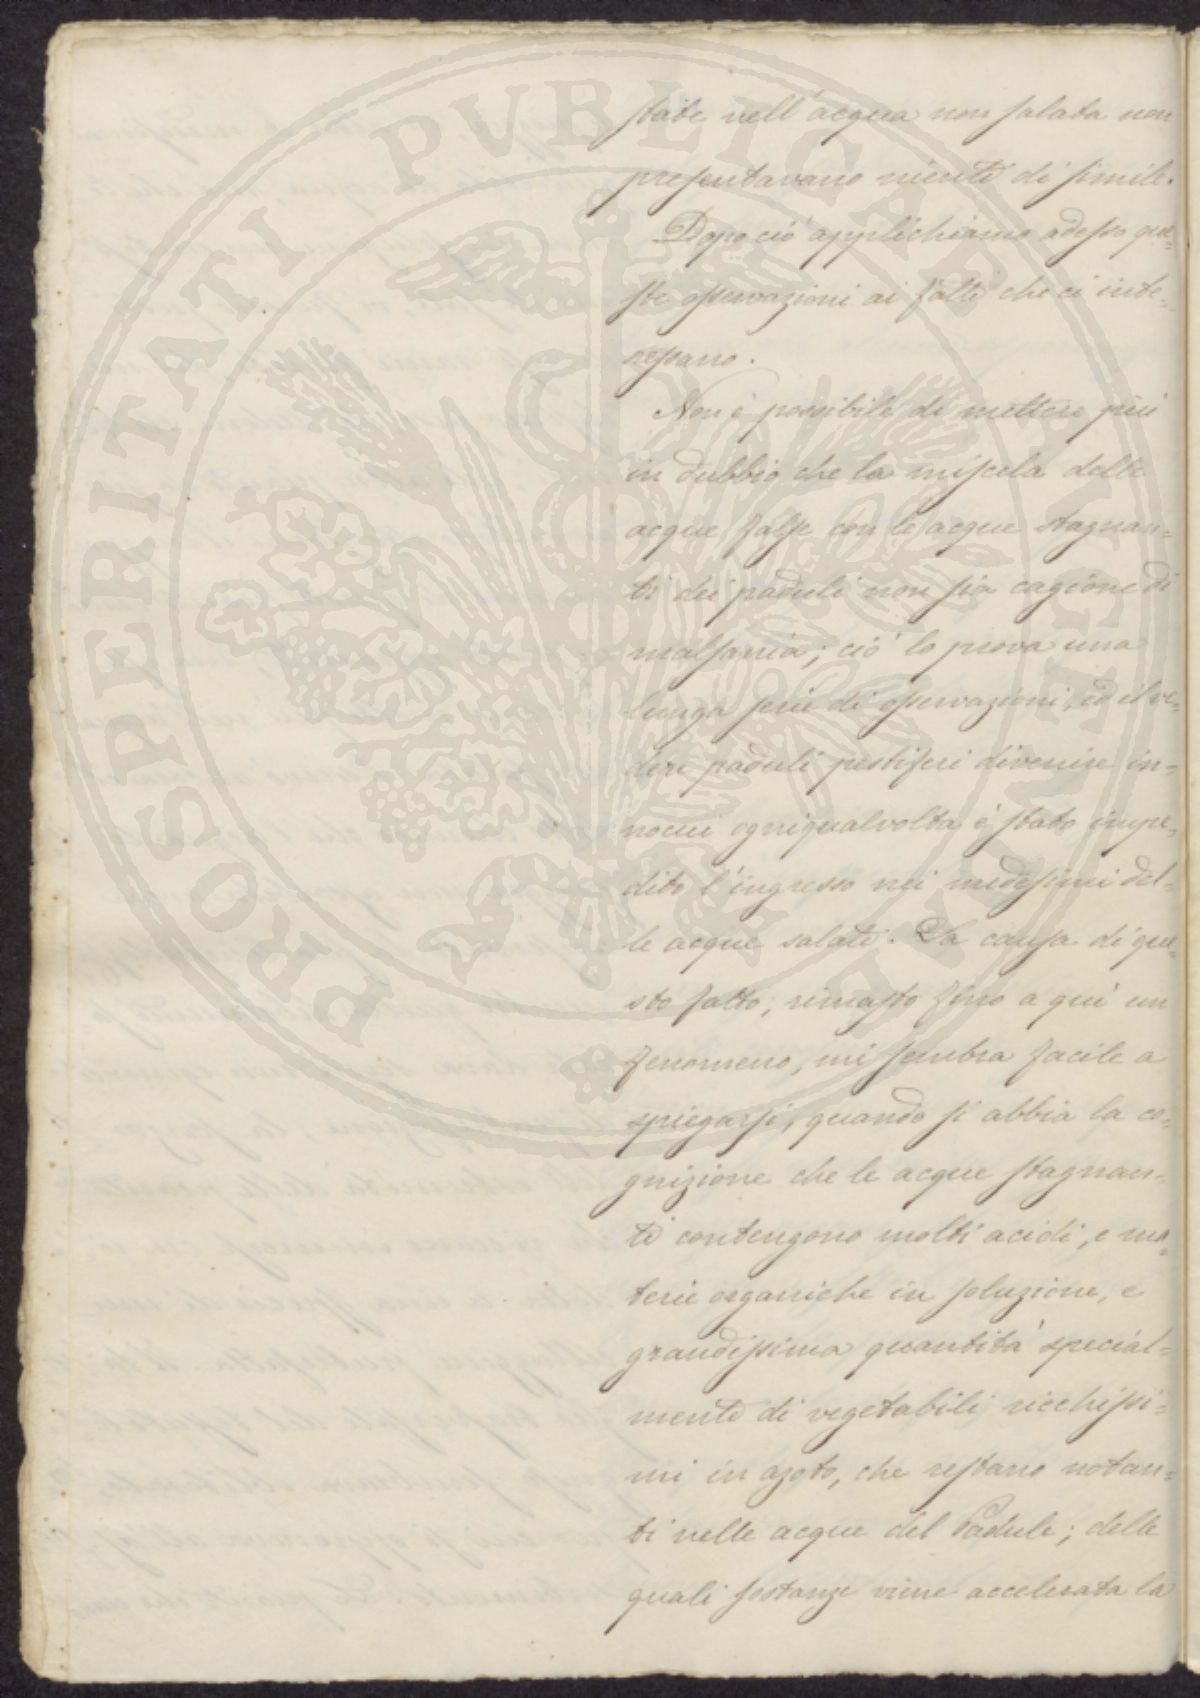 state nell'acqua non salata non
presentavano niente di simile.
Dopo ciò applichiamo adesso que=
ste osservazioni ai fatti che ci inte=
ressano.
Non è possibile di mettere più
in dubbio che la miscela delle
acque salse con le acque stagnan=
ti dei paduli non sia cagione di
malsania; ciò lo prova una
lunga serie di osservazioni, ed il ve=
dere paduli pestiferi divenire in=
nocui ogniqualvolta è stato impe=
dito l'ingresso nei medesimi del=
le acque salate. La causa di que=
sto fatto, rimasto fino a qui un
fenomeno, mi sembra facile a
spiegarsi, quando si abbia la co=
gnizione che le acque stagnan=
ti contengono molti acidi, e ma=
terie organiche in soluzione, e
grandissima quantità special=
mente di vegetabili ricchissi=
mi in azoto, che restano notan=
ti nelle acque del Padule; delle
quali sostanze viene accelerata la
PROSPERITATI PVBLICAE AVGENDAE